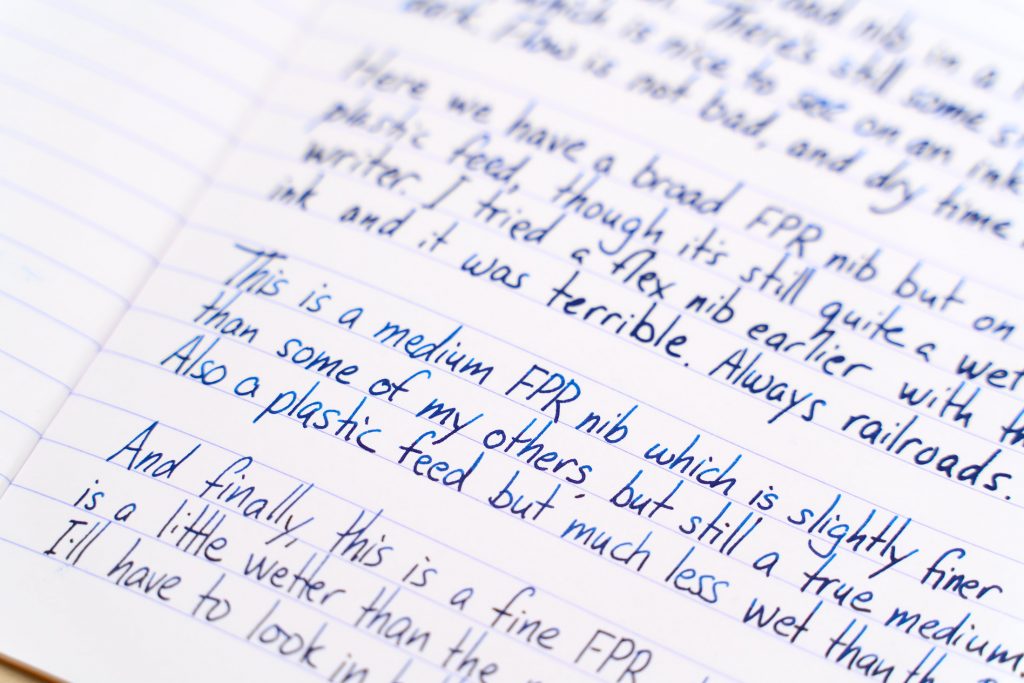 nib in a
There's still some
which is nice to see on an ink
Flow is not bad, and dry time
Here we have a broad FPR nib but on
plastic feed, though it's still quite a wet
writer. I tried a flex nib earlier with
ink and it was terrible. Always railroads.
This is a medium FPR nib which is slightly finer
than some of my others, but still a true medium.
Also a plastic feed but much less wet than
And finally, this is a fine FPR
is a little wetter than the
I'll have to look in